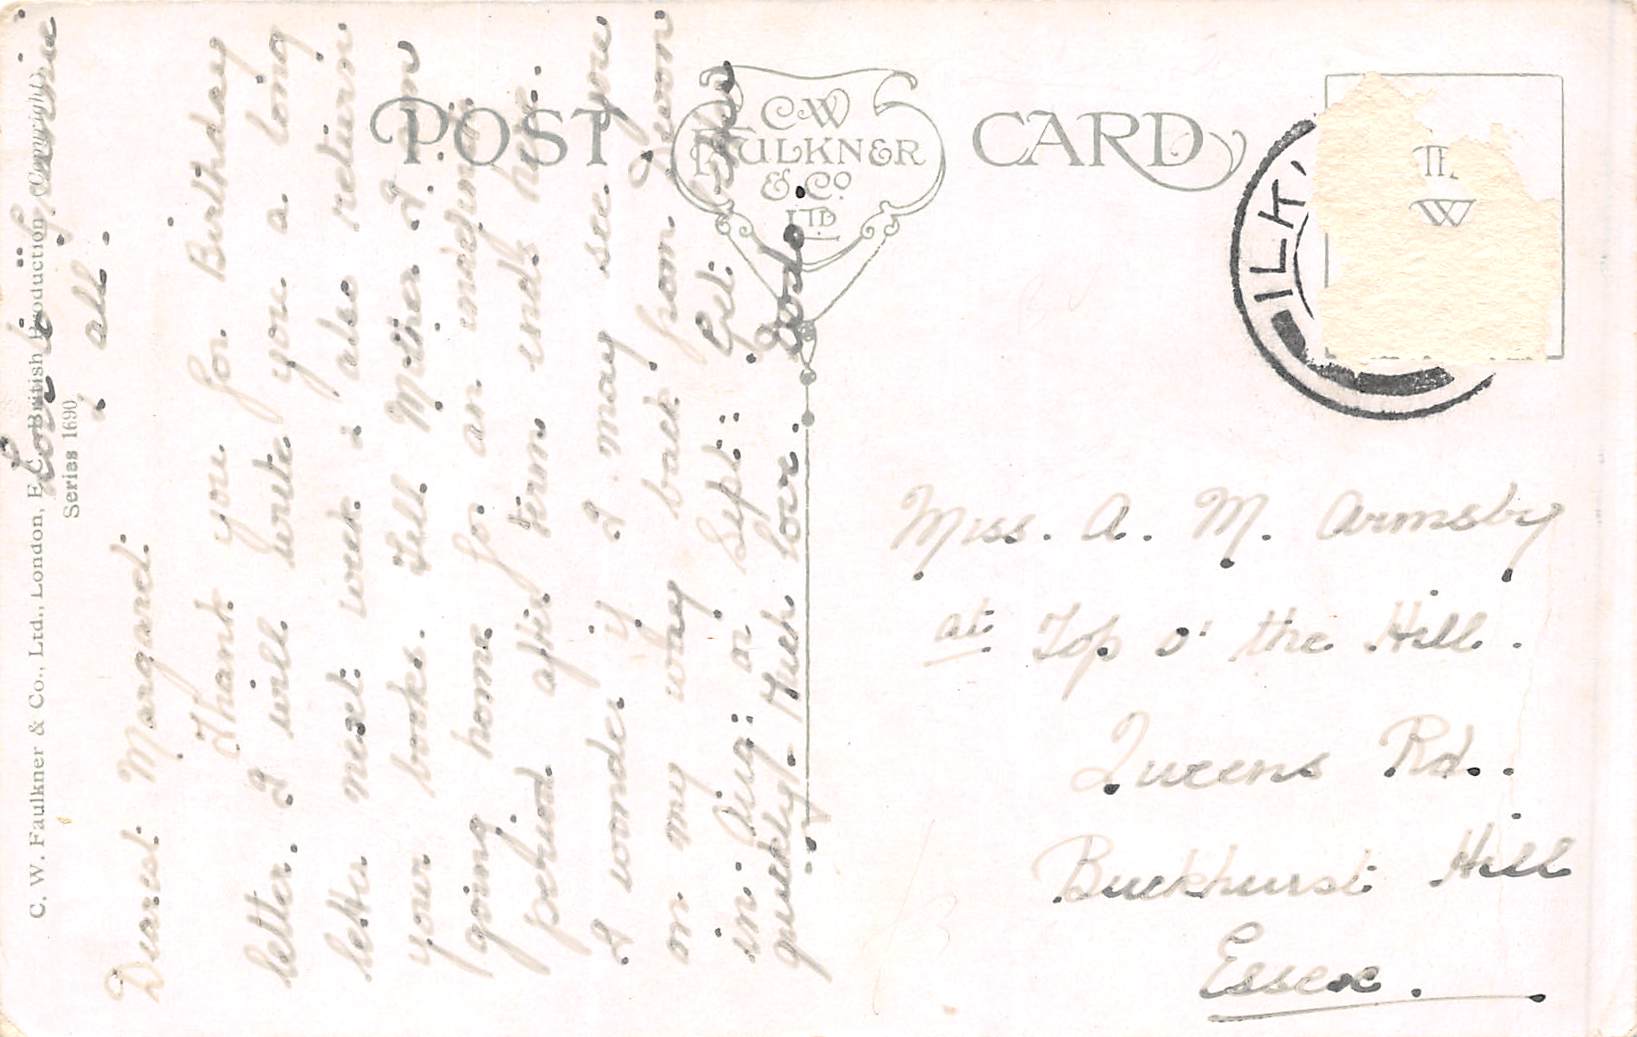 POST CARD
C.W.
FAULKNER
& Co.
LTD
ILK
TH
W
C. W. Faulkner & Co., Ltd., London, E.C. British Production, Copyright.
Series 1690
Dearest Margaret.
Thank you for Birthday
letter. I will write you a long
letter next week & also return
your books. Tell Mother I am
going home for an indefinite
period after term ends here.
I wonder if I may see you
on my way back from
in Aug: or Sept:: Get
quickly. Much love.
Dodo.
Love to
all.
Miss. A. M. Armsby
at Top o' the Hill.
Queens Rd..
Buckhurst Hill
Essex.